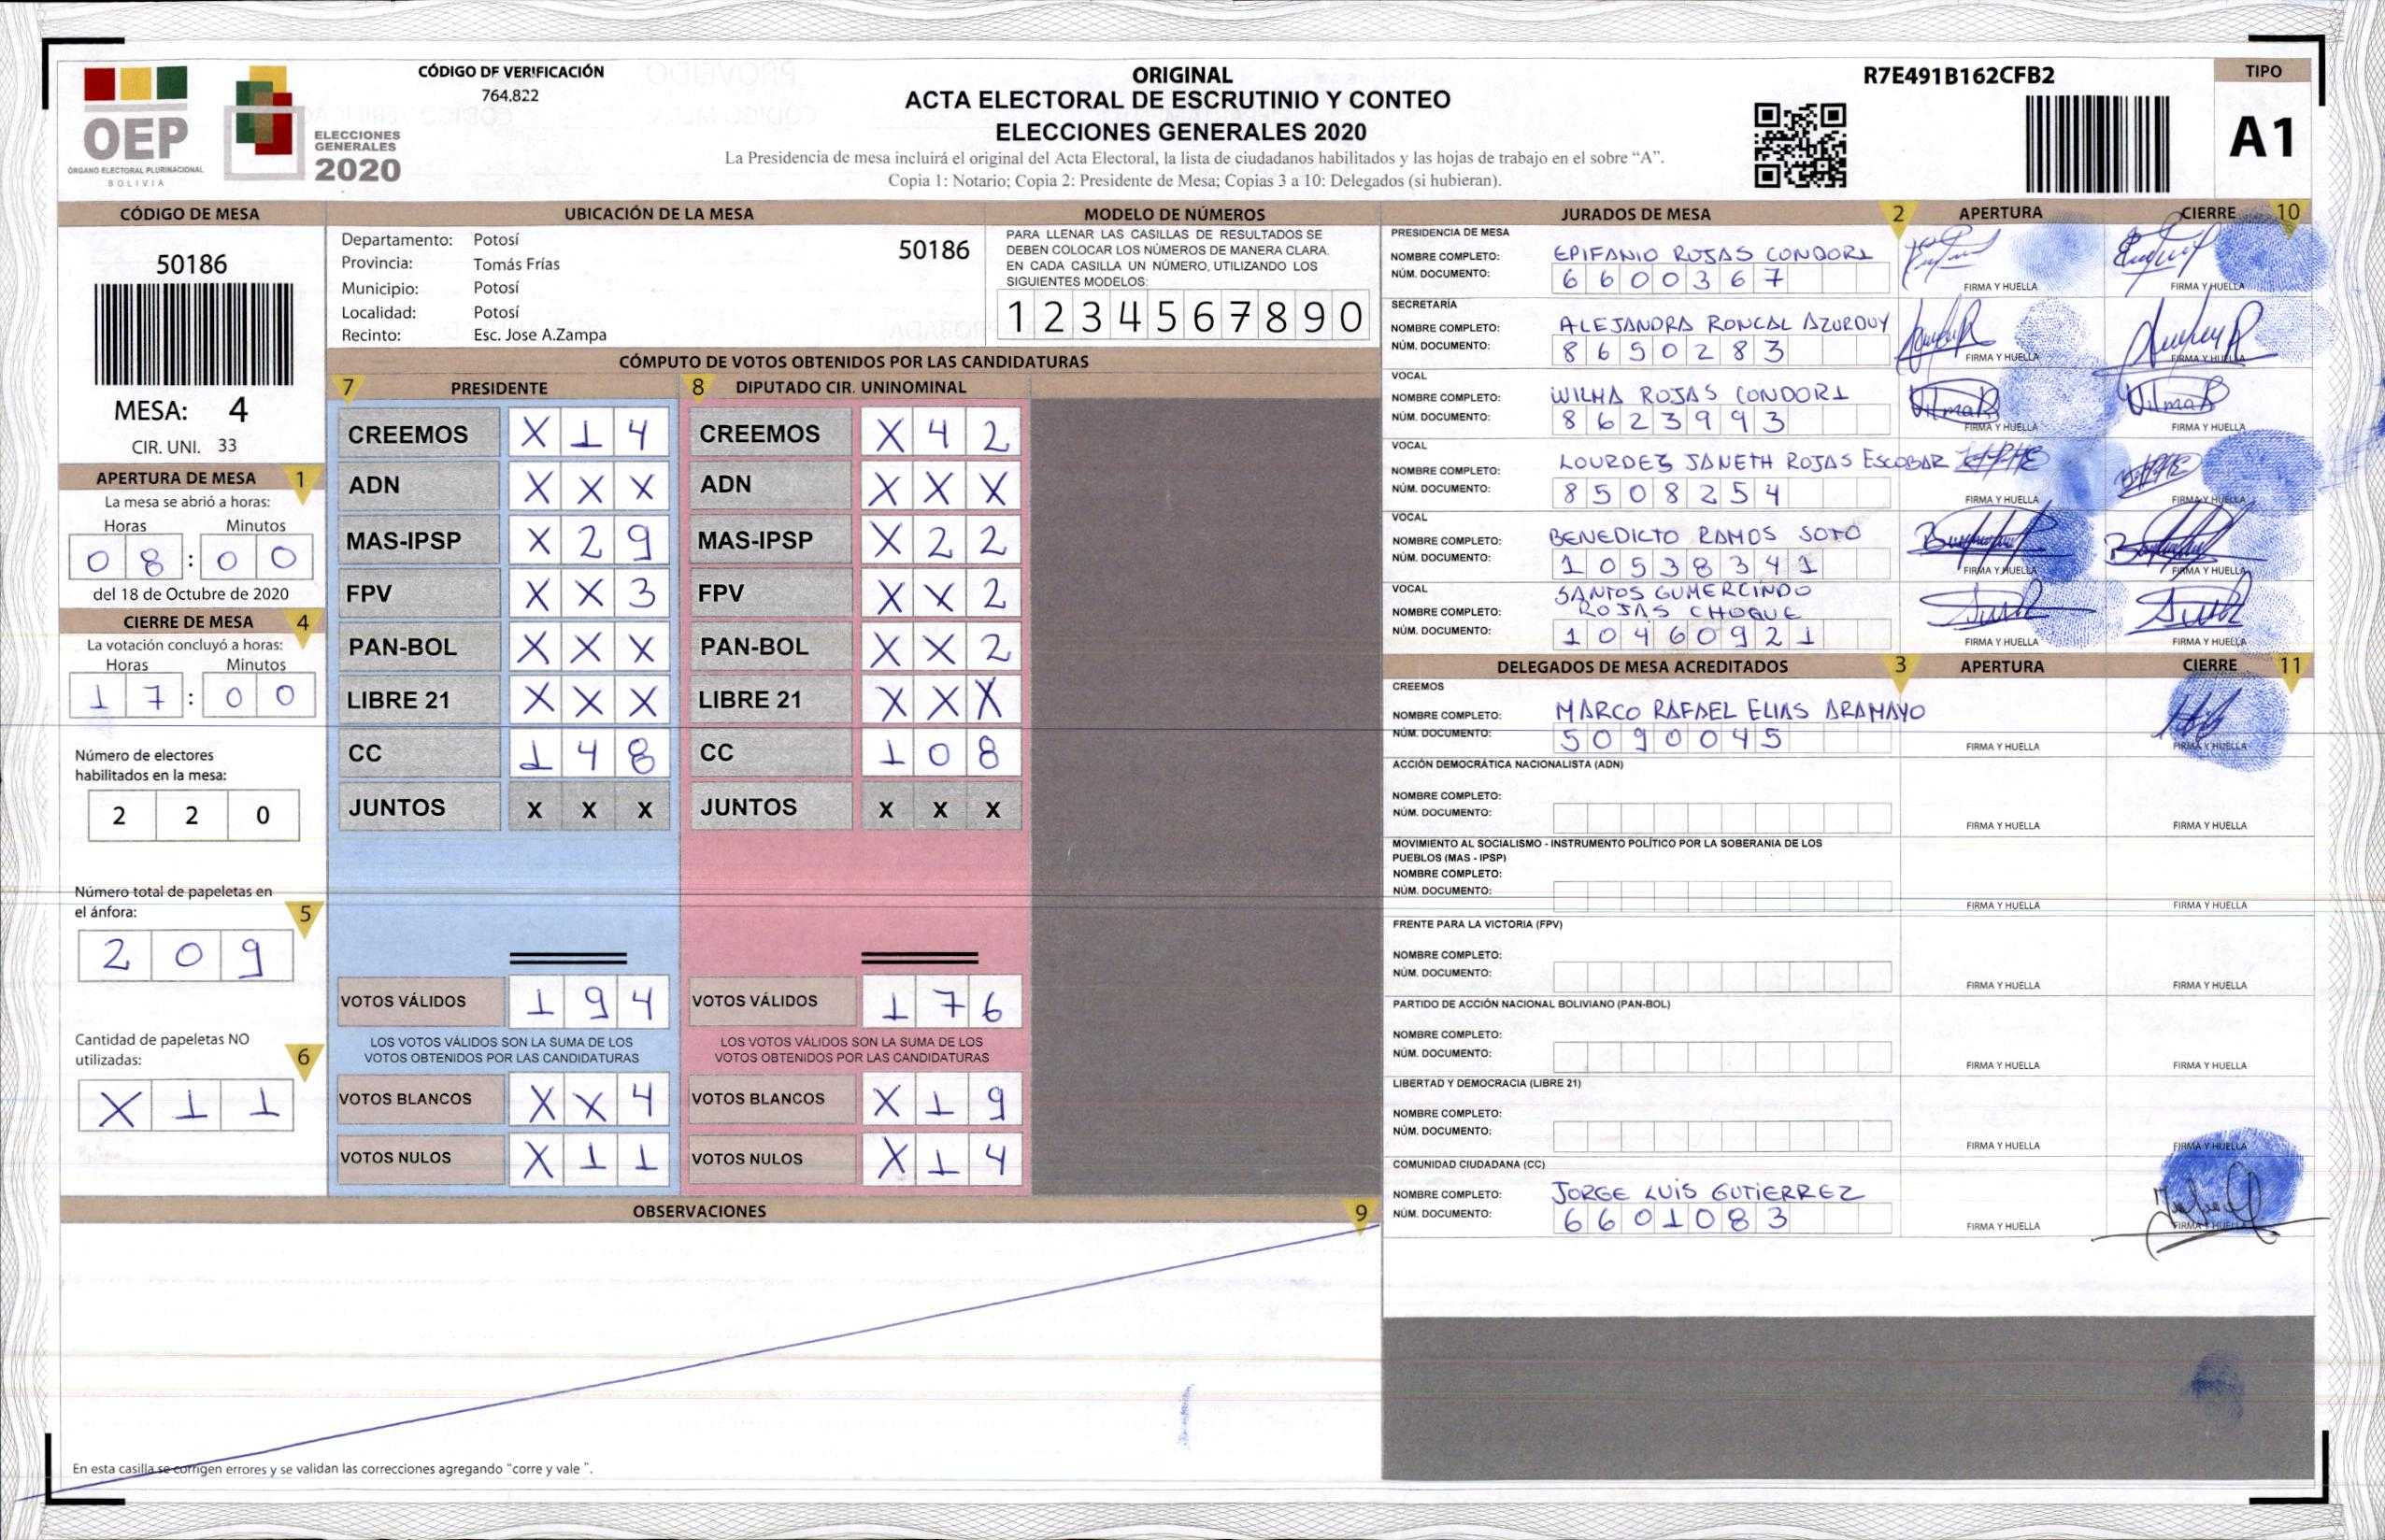 CÓDIGO DE VERIFICACIÓN
764.822
OEP
ÓRGANO ELECTORAL PLURINACIONAL
BOLIVIA
ELECCIONES
GENERALES
2020
ORIGINAL
ACTA ELECTORAL DE ESCRUTINIO Y CONTEO
ELECCIONES GENERALES 2020
La Presidencia de mesa incluirá el original del Acta Electoral, la lista de ciudadanos habilitados y las hojas de trabajo en el sobre “A”.
Copia 1: Notario; Copia 2: Presidente de Mesa; Copias 3 a 10: Delegados (si hubieran).
R7E491B162CFB2
TIPO
A1
CÓDIGO DE MESA
50186
MESA: 4
CIR. UNI. 33
APERTURA DE MESA 1
La mesa se abrió a horas:
Horas Minutos
0 8 : 0 0
del 18 de Octubre de 2020
CIERRE DE MESA 4
La votación concluyó a horas:
Horas Minutos
1 7 : 0 0
Número de electores
habilitados en la mesa:
2 2 0
Número total de papeletas en
el ánfora: 5
2 0 9
Cantidad de papeletas NO
utilizadas: 6
X 1 1
UBICACIÓN DE LA MESA
Departamento: Potosí 50186
Provincia: Tomás Frías
Municipio: Potosí
Localidad: Potosí
Recinto: Esc. Jose A.Zampa
MODELO DE NÚMEROS
PARA LLENAR LAS CASILLAS DE RESULTADOS SE
DEBEN COLOCAR LOS NÚMEROS DE MANERA CLARA.
EN CADA CASILLA UN NÚMERO, UTILIZANDO LOS
SIGUIENTES MODELOS:
1 2 3 4 5 6 7 8 9 0
CÓMPUTO DE VOTOS OBTENIDOS POR LAS CANDIDATURAS
7 PRESIDENTE 8 DIPUTADO CIR. UNINOMINAL
CREEMOS X 1 4 CREEMOS X 4 2
ADN X X X ADN X X X
MAS-IPSP X 2 9 MAS-IPSP X 2 2
FPV X X 3 FPV X X 2
PAN-BOL X X X PAN-BOL X X 2
LIBRE 21 X X X LIBRE 21 X X X
CC 1 4 8 CC 1 0 8
JUNTOS X X X JUNTOS X X X
VOTOS VÁLIDOS 1 9 4 VOTOS VÁLIDOS 1 7 6
LOS VOTOS VÁLIDOS SON LA SUMA DE LOS LOS VOTOS VÁLIDOS SON LA SUMA DE LOS
VOTOS OBTENIDOS POR LAS CANDIDATURAS VOTOS OBTENIDOS POR LAS CANDIDATURAS
VOTOS BLANCOS X X 4 VOTOS BLANCOS X 1 9
VOTOS NULOS X 1 1 VOTOS NULOS X 1 4
OBSERVACIONES 9
En esta casilla se corrigen errores y se validan las correcciones agregando “corre y vale ”.
JURADOS DE MESA 2 APERTURA CIERRE 10
PRESIDENCIA DE MESA
NOMBRE COMPLETO: EPIFANIO ROJAS CONDORI
NÚM. DOCUMENTO: 6 6 0 0 3 6 7
FIRMA Y HUELLA FIRMA Y HUELLA
SECRETARÍA
NOMBRE COMPLETO: ALEJANDRA RONCAL AZURDUY
NÚM. DOCUMENTO: 8 6 5 0 2 8 3
FIRMA Y HUELLA FIRMA Y HUELLA
VOCAL
NOMBRE COMPLETO: WILMA ROJAS CONDORI
NÚM. DOCUMENTO: 8 6 2 3 9 9 3
FIRMA Y HUELLA FIRMA Y HUELLA
VOCAL
NOMBRE COMPLETO: LOURDES JANETH ROJAS ESCOBAR
NÚM. DOCUMENTO: 8 5 0 8 2 5 4
FIRMA Y HUELLA FIRMA Y HUELLA
VOCAL
NOMBRE COMPLETO: BENEDICTO RAMOS SOTO
NÚM. DOCUMENTO: 1 0 5 3 8 3 4 1
FIRMA Y HUELLA FIRMA Y HUELLA
VOCAL SANTOS GUMERCINDO
NOMBRE COMPLETO: ROJAS CHOQUE
NÚM. DOCUMENTO: 1 0 4 6 0 9 2 1
FIRMA Y HUELLA FIRMA Y HUELLA
DELEGADOS DE MESA ACREDITADOS 3 APERTURA CIERRE 11
CREEMOS
NOMBRE COMPLETO: MARCO RAFAEL ELIAS ARAMAYO
NÚM. DOCUMENTO: 5 0 9 0 0 4 5
FIRMA Y HUELLA FIRMA Y HUELLA
ACCIÓN DEMOCRÁTICA NACIONALISTA (ADN)
NOMBRE COMPLETO:
NÚM. DOCUMENTO:
FIRMA Y HUELLA FIRMA Y HUELLA
MOVIMIENTO AL SOCIALISMO - INSTRUMENTO POLÍTICO POR LA SOBERANIA DE LOS
PUEBLOS (MAS - IPSP)
NOMBRE COMPLETO:
NÚM. DOCUMENTO:
FIRMA Y HUELLA FIRMA Y HUELLA
FRENTE PARA LA VICTORIA (FPV)
NOMBRE COMPLETO:
NÚM. DOCUMENTO:
FIRMA Y HUELLA FIRMA Y HUELLA
PARTIDO DE ACCIÓN NACIONAL BOLIVIANO (PAN-BOL)
NOMBRE COMPLETO:
NÚM. DOCUMENTO:
FIRMA Y HUELLA FIRMA Y HUELLA
LIBERTAD Y DEMOCRACIA (LIBRE 21)
NOMBRE COMPLETO:
NÚM. DOCUMENTO:
FIRMA Y HUELLA FIRMA Y HUELLA
COMUNIDAD CIUDADANA (CC)
NOMBRE COMPLETO: JORGE LUIS GUTIERREZ
NÚM. DOCUMENTO: 6 6 0 1 0 8 3
FIRMA Y HUELLA FIRMA Y HUELLA